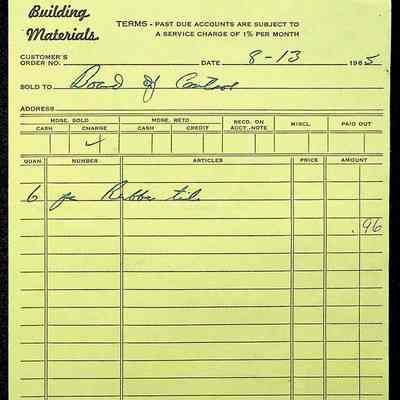 Building
Materials.
TERMS - PAST DUE ACCOUNTS ARE SUBJECT TO
A SERVICE CHARGE OF 1% PER MONTH
CUSTOMER'S
ORDER NO. DATE 8-13 1965
SOLD TO Board of Control
ADDRESS
MDSE. SOLD MDSE. RETD. RECD. ON ACCT.-NOTE MISCL. PAID OUT
CASH CHARGE CASH CREDIT
✓
QUAN. NUMBER ARTICLES PRICE AMOUNT
6 pc Rubber tile
.96